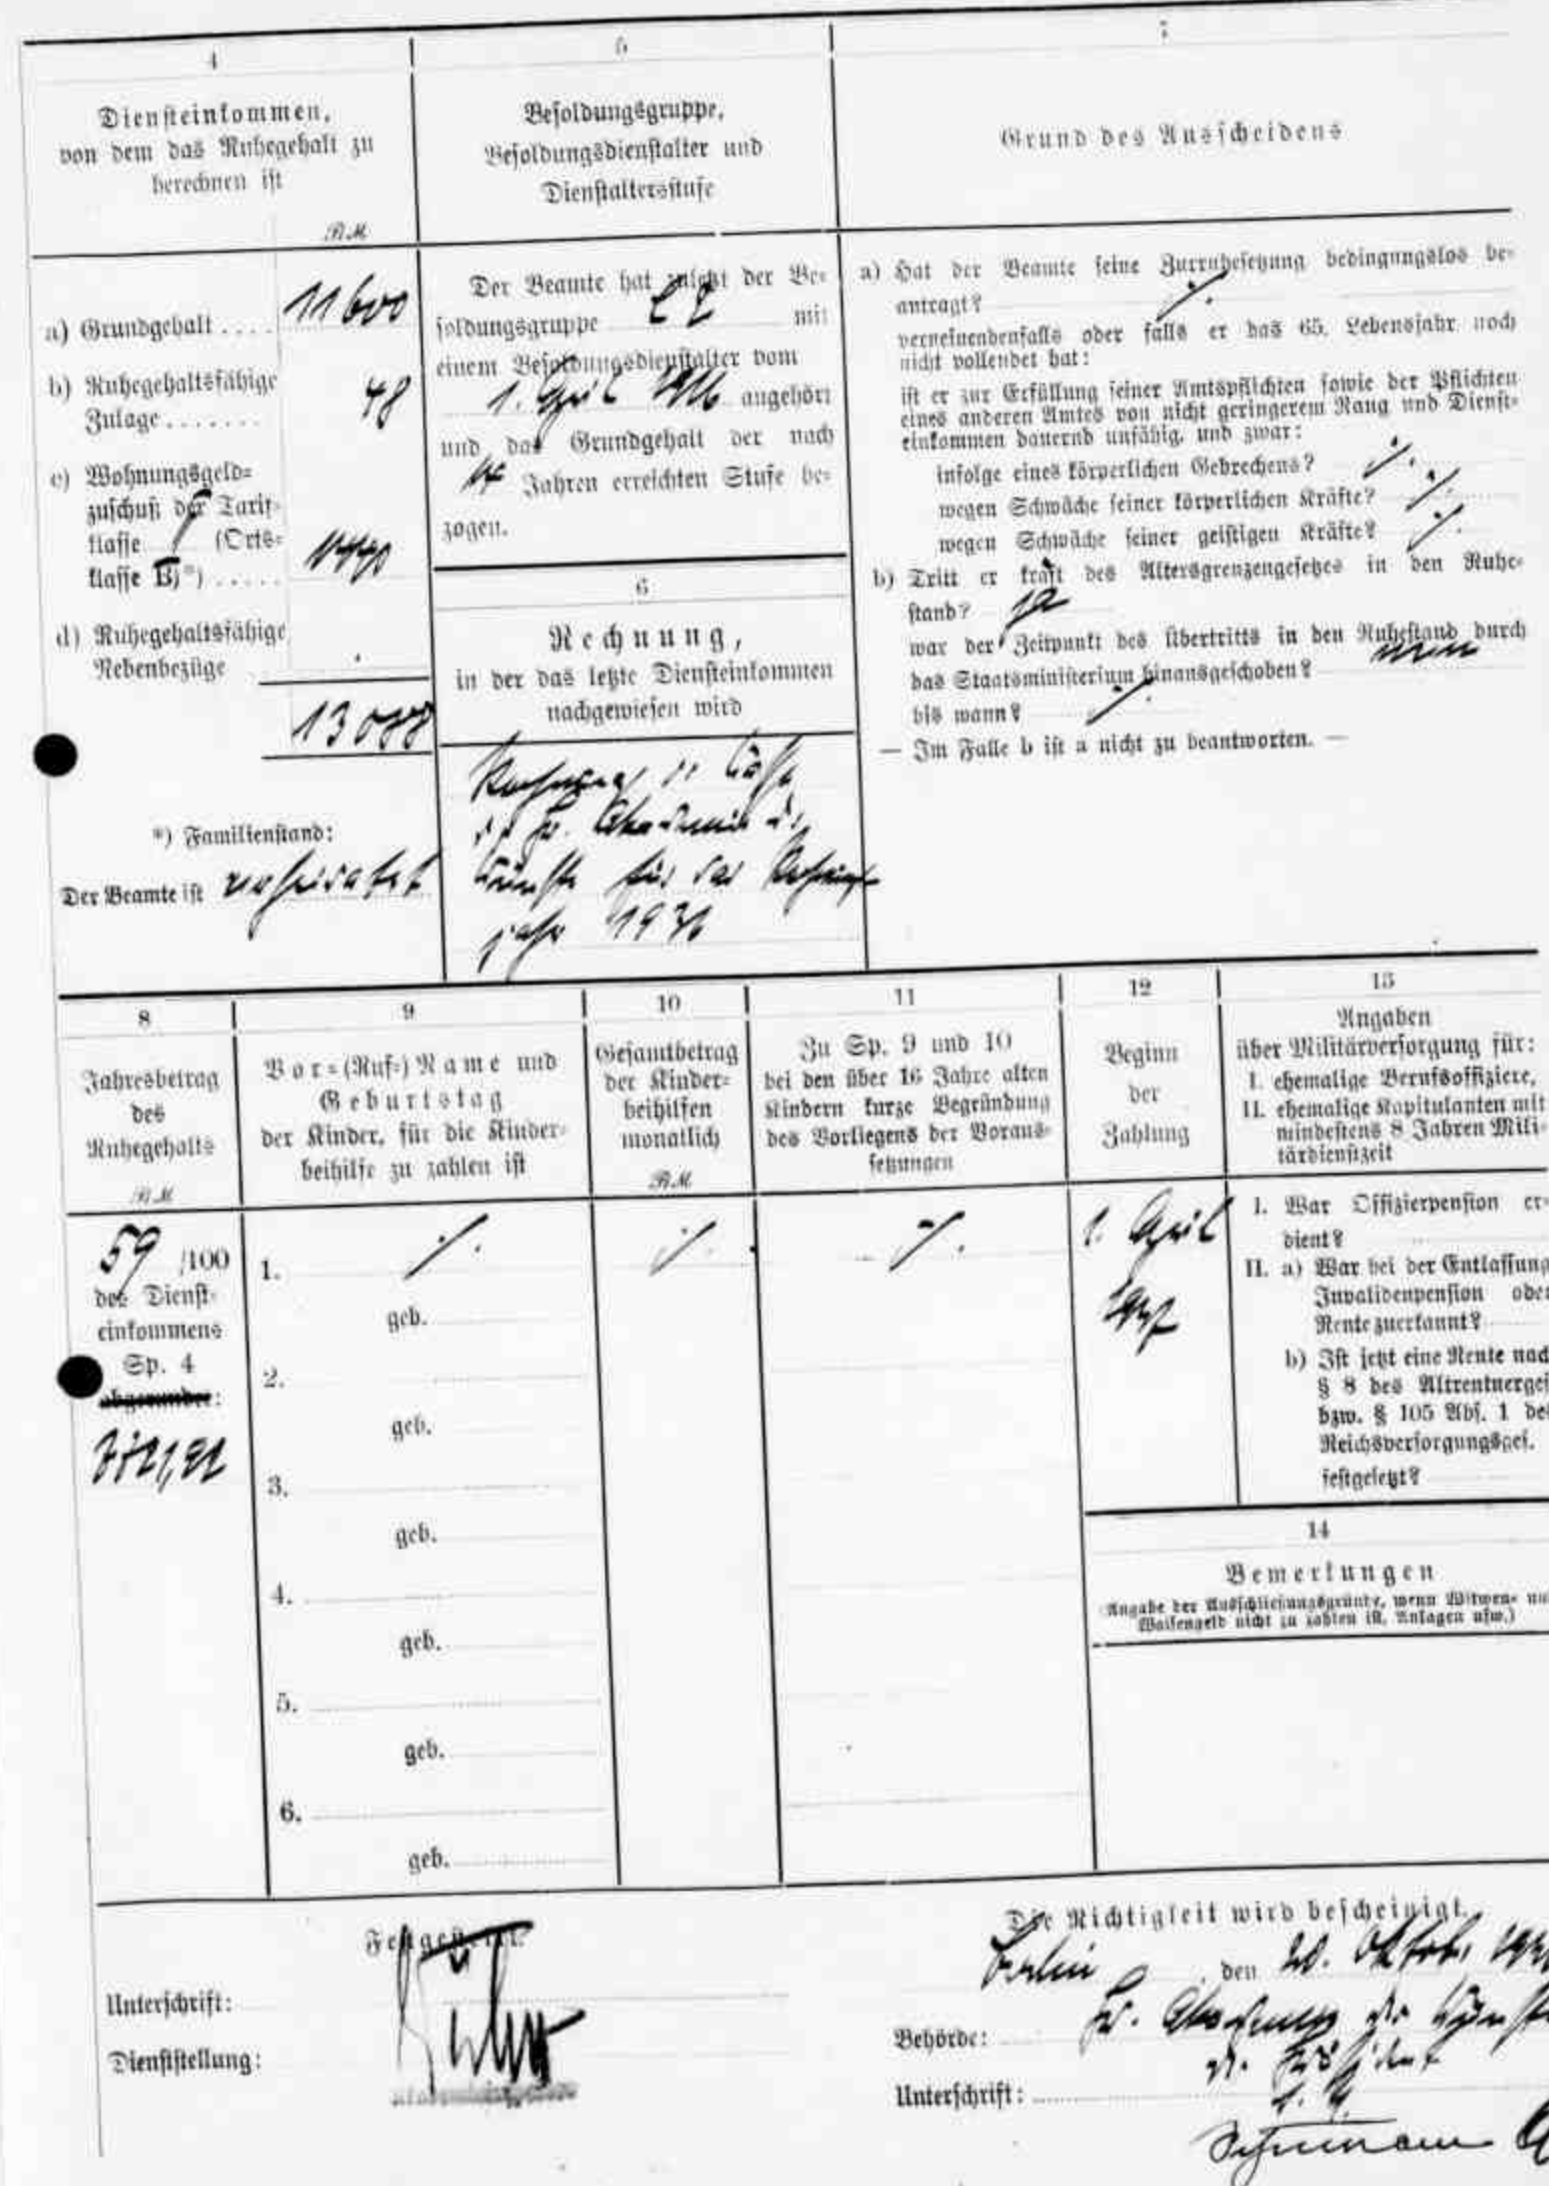 4
Diensteinkommen,
von dem das Ruhegehalt zu
berechnen ist
RM
a) Grundgehalt .... 11600
b) Ruhegehaltsfähige
Zulage ....... 48
c) Wohnungsgeld-
zuschuß der Tarif-
klasse (Orts-
klasse B)*) ..... 1440
d) Ruhegehaltsfähige
Nebenbezüge
13088
*) Familienstand:
Der Beamte ist verheiratet
5
Besoldungsgruppe,
Besoldungsdienstalter und
Dienstaltersstufe
Der Beamte hat zuletzt der Be-
soldungsgruppe C 2 mit
einem Besoldungsdienstalter vom
1. April angehört
und das Grundgehalt der nach
14 Jahren erreichten Stufe be-
zogen.
6
Rechnung,
in der das letzte Diensteinkommen
nachgewiesen wird
Rechnung der Kasse
der Pr. Akademie der
Künste für das Rechnungs
jahr 1936
7
Grund des Ausscheidens
a) Hat der Beamte seine Zurruhesetzung bedingungslos be-
antragt? ./.
verneinendenfalls oder falls er das 65. Lebensjahr noch
nicht vollendet hat:
ist er zur Erfüllung seiner Amtspflichten sowie der Pflichten
eines anderen Amtes von nicht geringerem Rang und Dienst-
einkommen dauernd unfähig, und zwar:
infolge eines körperlichen Gebrechens? ./.
wegen Schwäche seiner körperlichen Kräfte? ./.
wegen Schwäche seiner geistigen Kräfte? ./.
b) Tritt er kraft des Altersgrenzengesetzes in den Ruhe-
stand? ja
war der Zeitpunkt des Übertritts in den Ruhestand durch
das Staatsministerium hinausgeschoben? nein
bis wann? ./.
— Im Falle b ist a nicht zu beantworten. —
8
Jahresbetrag
des
Ruhegehalts
RM
59 /100
des Dienst-
einkommens
Sp. 4
abgerundet:
7721,92
9
Vor-(Ruf-)Name und
Geburtstag
der Kinder, für die Kinder-
beihilfe zu zahlen ist
1. ./.
geb.
2.
geb.
3.
geb.
4.
geb.
5.
geb.
6.
geb.
10
Gesamtbetrag
der Kinder-
beihilfen
monatlich
RM
./.
11
Zu Sp. 9 und 10
bei den über 16 Jahre alten
Kindern kurze Begründung
des Vorliegens der Voraus-
setzungen
./.
12
Beginn
der
Zahlung
1. April
1937
13
Angaben
über Militärversorgung für:
I. ehemalige Berufsoffiziere,
II. ehemalige Kapitulanten mit
mindestens 8 Jahren Mili-
tärdienstzeit
I. War Offizierpension er-
dient?
II. a) War bei der Entlassung
Invalidenpension oder
Rente zuerkannt?
b) Ist jetzt eine Rente nach
§ 8 des Altrentnerges
bzw. § 105 Abs. 1 des
Reichsversorgungsges.
festgesetzt?
14
Bemerkungen
(Angabe der Ausschließungsgründe, wenn Witwen- und
Waisengeld nicht zu zahlen ist, Anlagen usw.)
Festgestellt:
Unterschrift:
Dienststellung:
Die Richtigkeit wird bescheinigt.
Berlin, den 20. Oktob. 193
Behörde: Pr. Akademie der Künste
Der Präsident
Unterschrift: I. A.